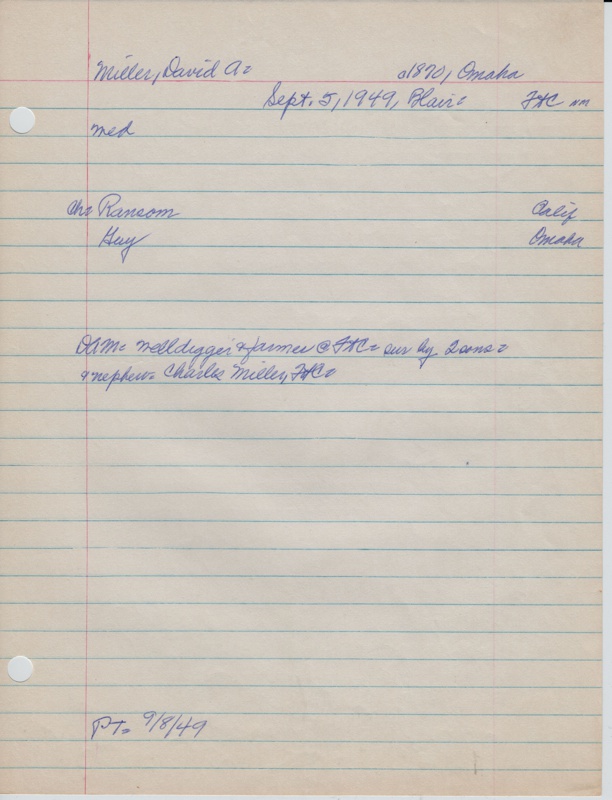 Miller, David A= c1870, Omaha
Sept. 5, 1949, Blair= FtC NM
med
ch= Ransom Calif
Guy Omaha
DAM= welldigger & farmer @ FtC= sur by 2 sons=
& nephew= Charles Miller, FtC=
PT= 9/8/49